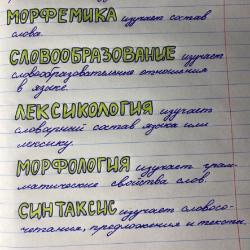 МОРФЕМИКА изучает состав
слова.
СЛОВООБРАЗОВАНИЕ изучает
словообразовательные отношения
в языке.
ЛЕКСИКОЛОГИЯ изучает
словарный состав языка или
лексику.
МОРФОЛОГИЯ изучает грам-
матические свойства слов.
СИНТАКСИС изучает словосо-
четания, предложения и тексты.